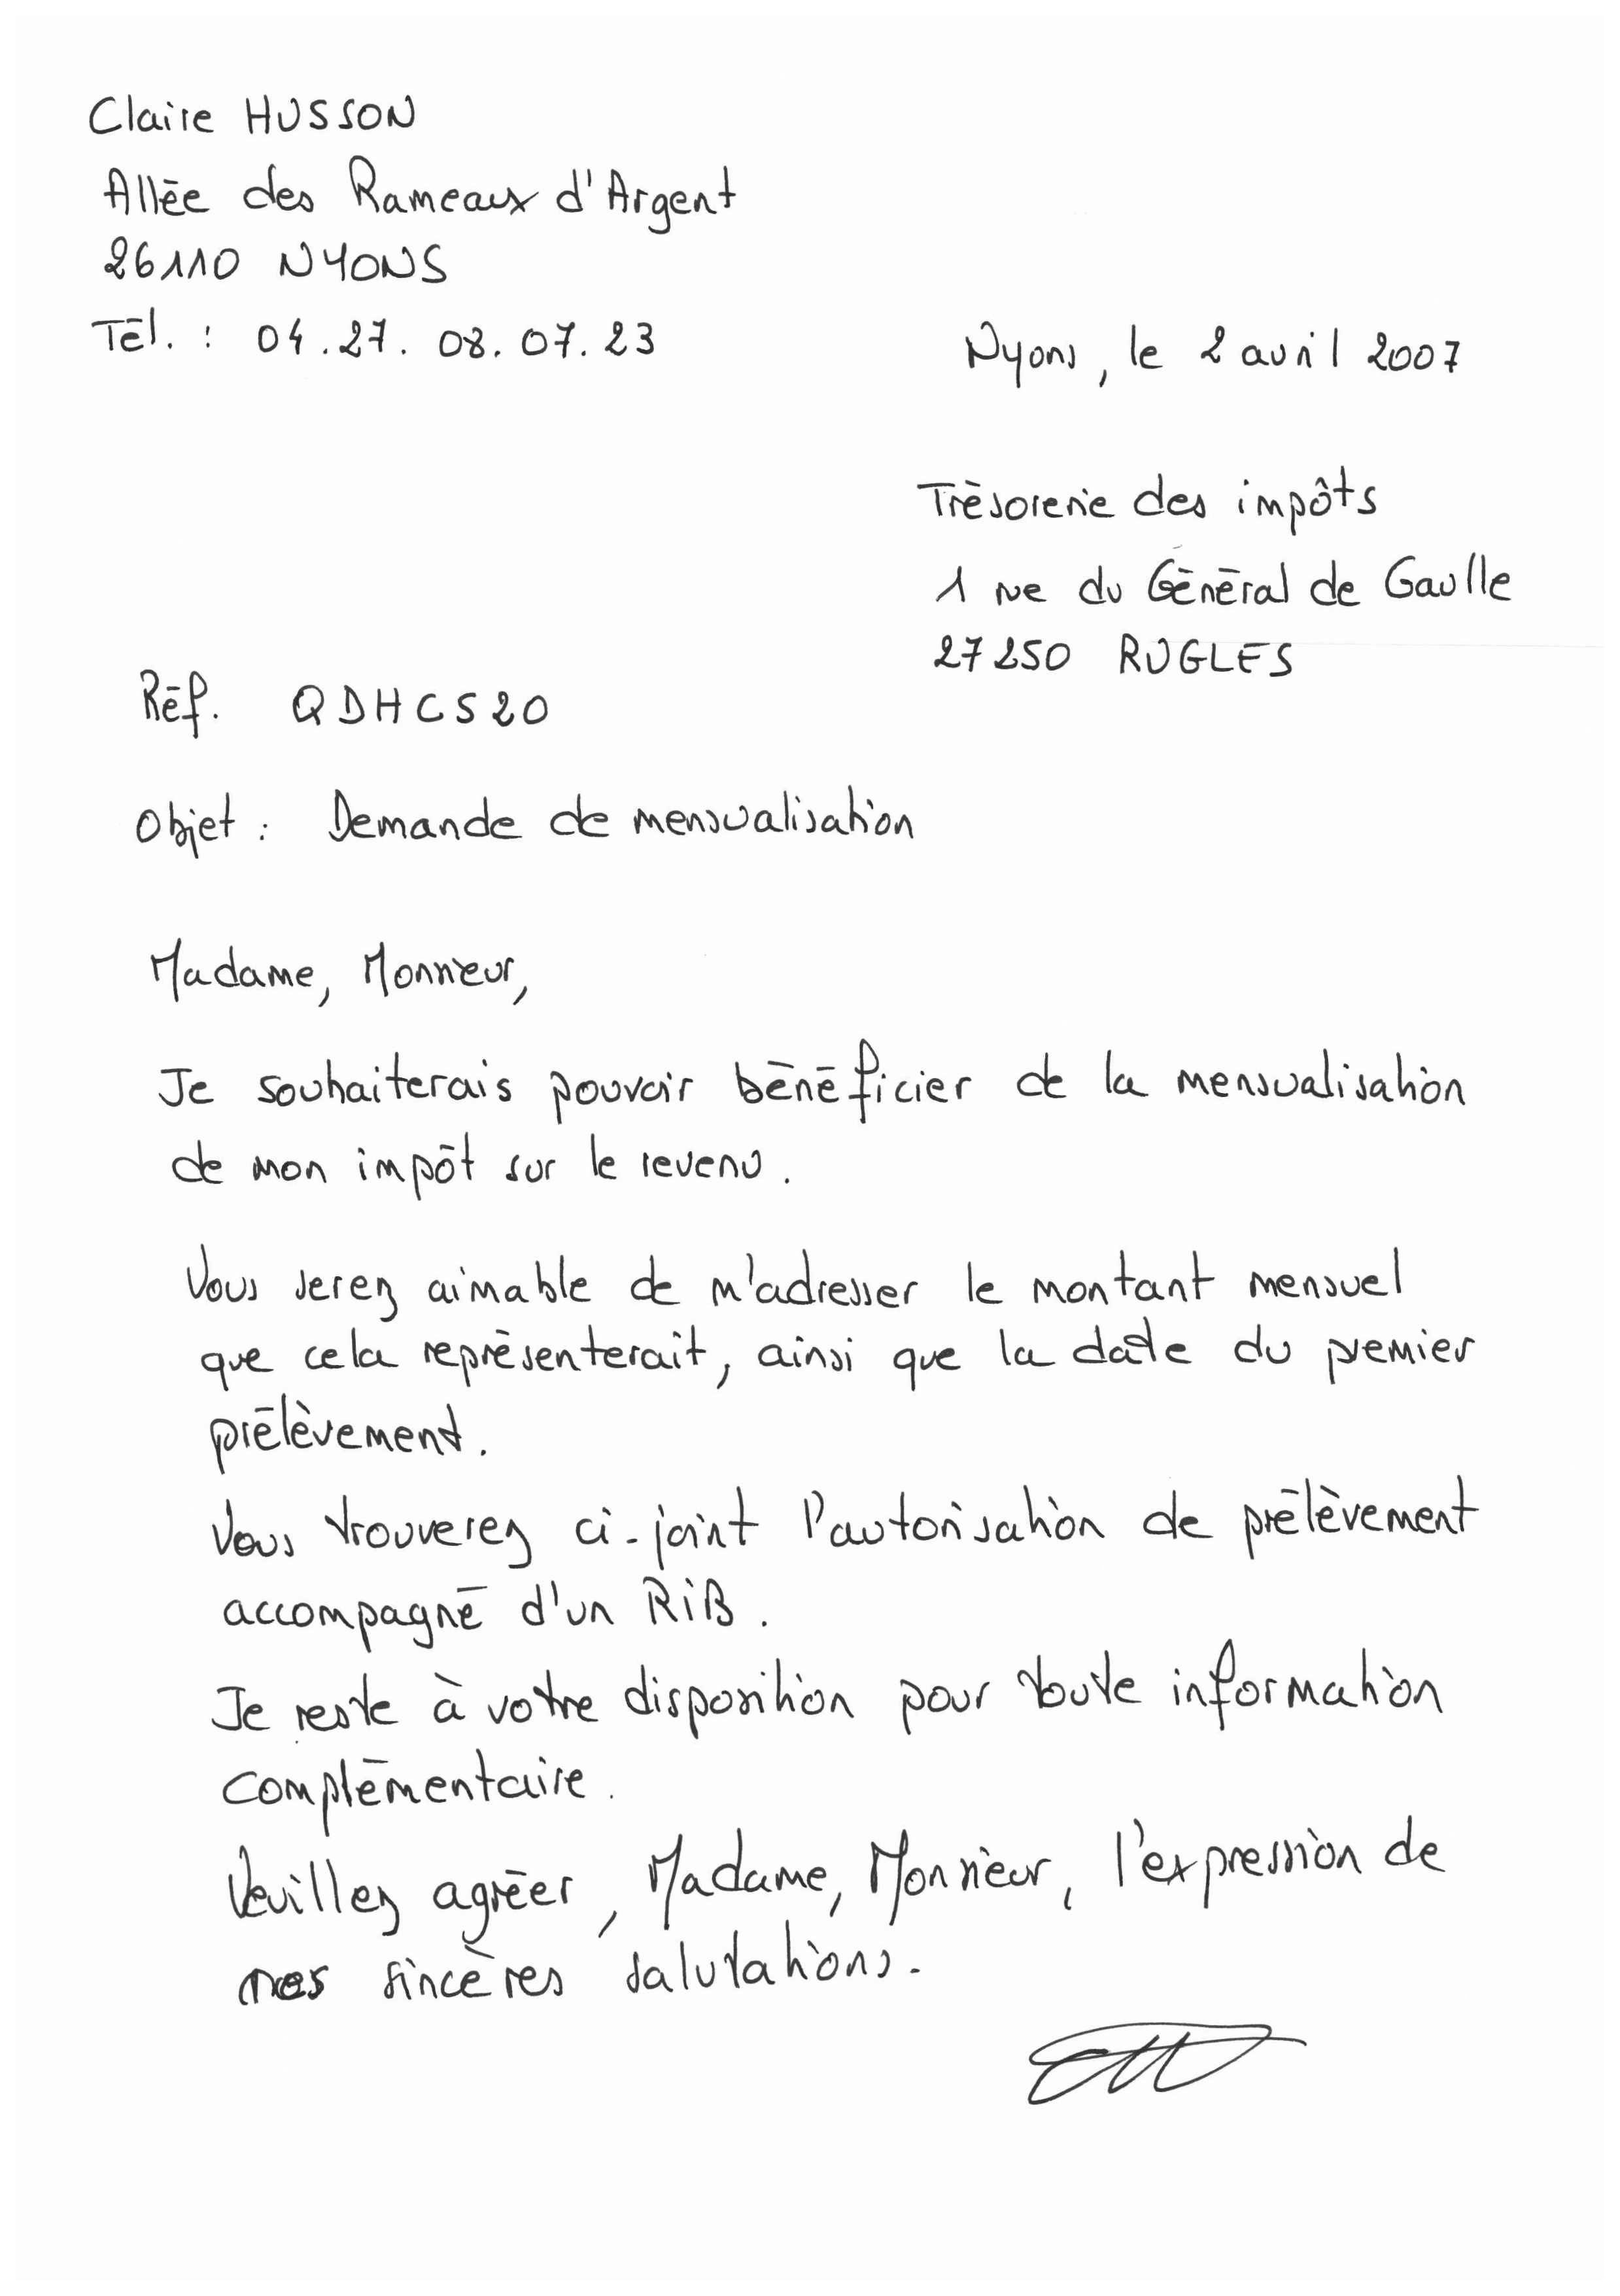 Claire HUSSON
Allée des Rameaux d'Argent
26110 NYONS
Tél. : 04.27.08.07.23
Nyons, le 2 avril 2007
Trésorerie des impôts
1 rue du Général de Gaulle
27250 RUGLES
Réf. QDHCS20
Objet : Demande de mensualisation
Madame, Monsieur,
Je souhaiterais pouvoir bénéficier de la mensualisation
de mon impôt sur le revenu.
Vous serez aimable de m'adresser le montant mensuel
que cela représenterait, ainsi que la date du premier
prélèvement.
Vous trouverez ci-joint l'autorisation de prélèvement
accompagné d'un RiB.
Je reste à votre disposition pour toute information
complémentaire.
Veuillez agréer, Madame, Monsieur, l'expression de
mes sincères salutations.